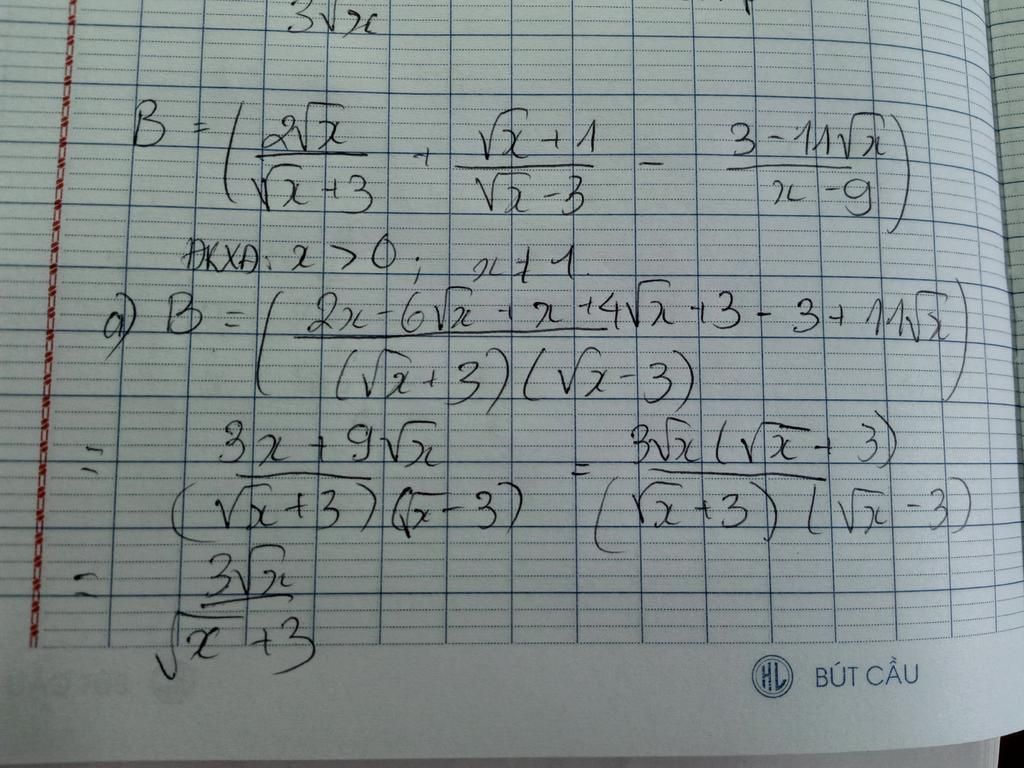 3√x
B = ( 2√x / (√x + 3) + (√x + 1) / (√x - 3) - (3 - 11√x) / (x - 9) )
ĐKXĐ: x > 0; x ≠ 1
a) B = ( (2x - 6√x + x + 4√x + 3 - 3 + 11√x) / ((√x + 3)(√x - 3)) )
= (3x + 9√x) / ((√x + 3)(√x - 3)) = 3√x(√x + 3) / ((√x + 3)(√x - 3))
= 3√x / (√x + 3)
HL BÚT CẦU